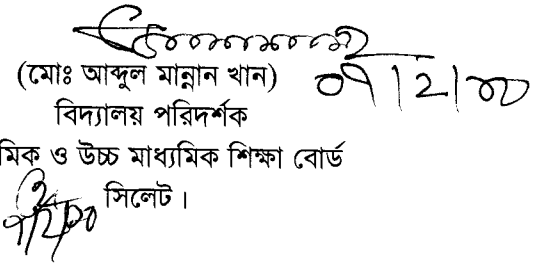 (মোঃ আব্দুল মান্নান খান)
বিদ্যালয় পরিদর্শক
মিক ও উচ্চ মাধ্যমিক শিক্ষা বোর্ড
সিলেট।